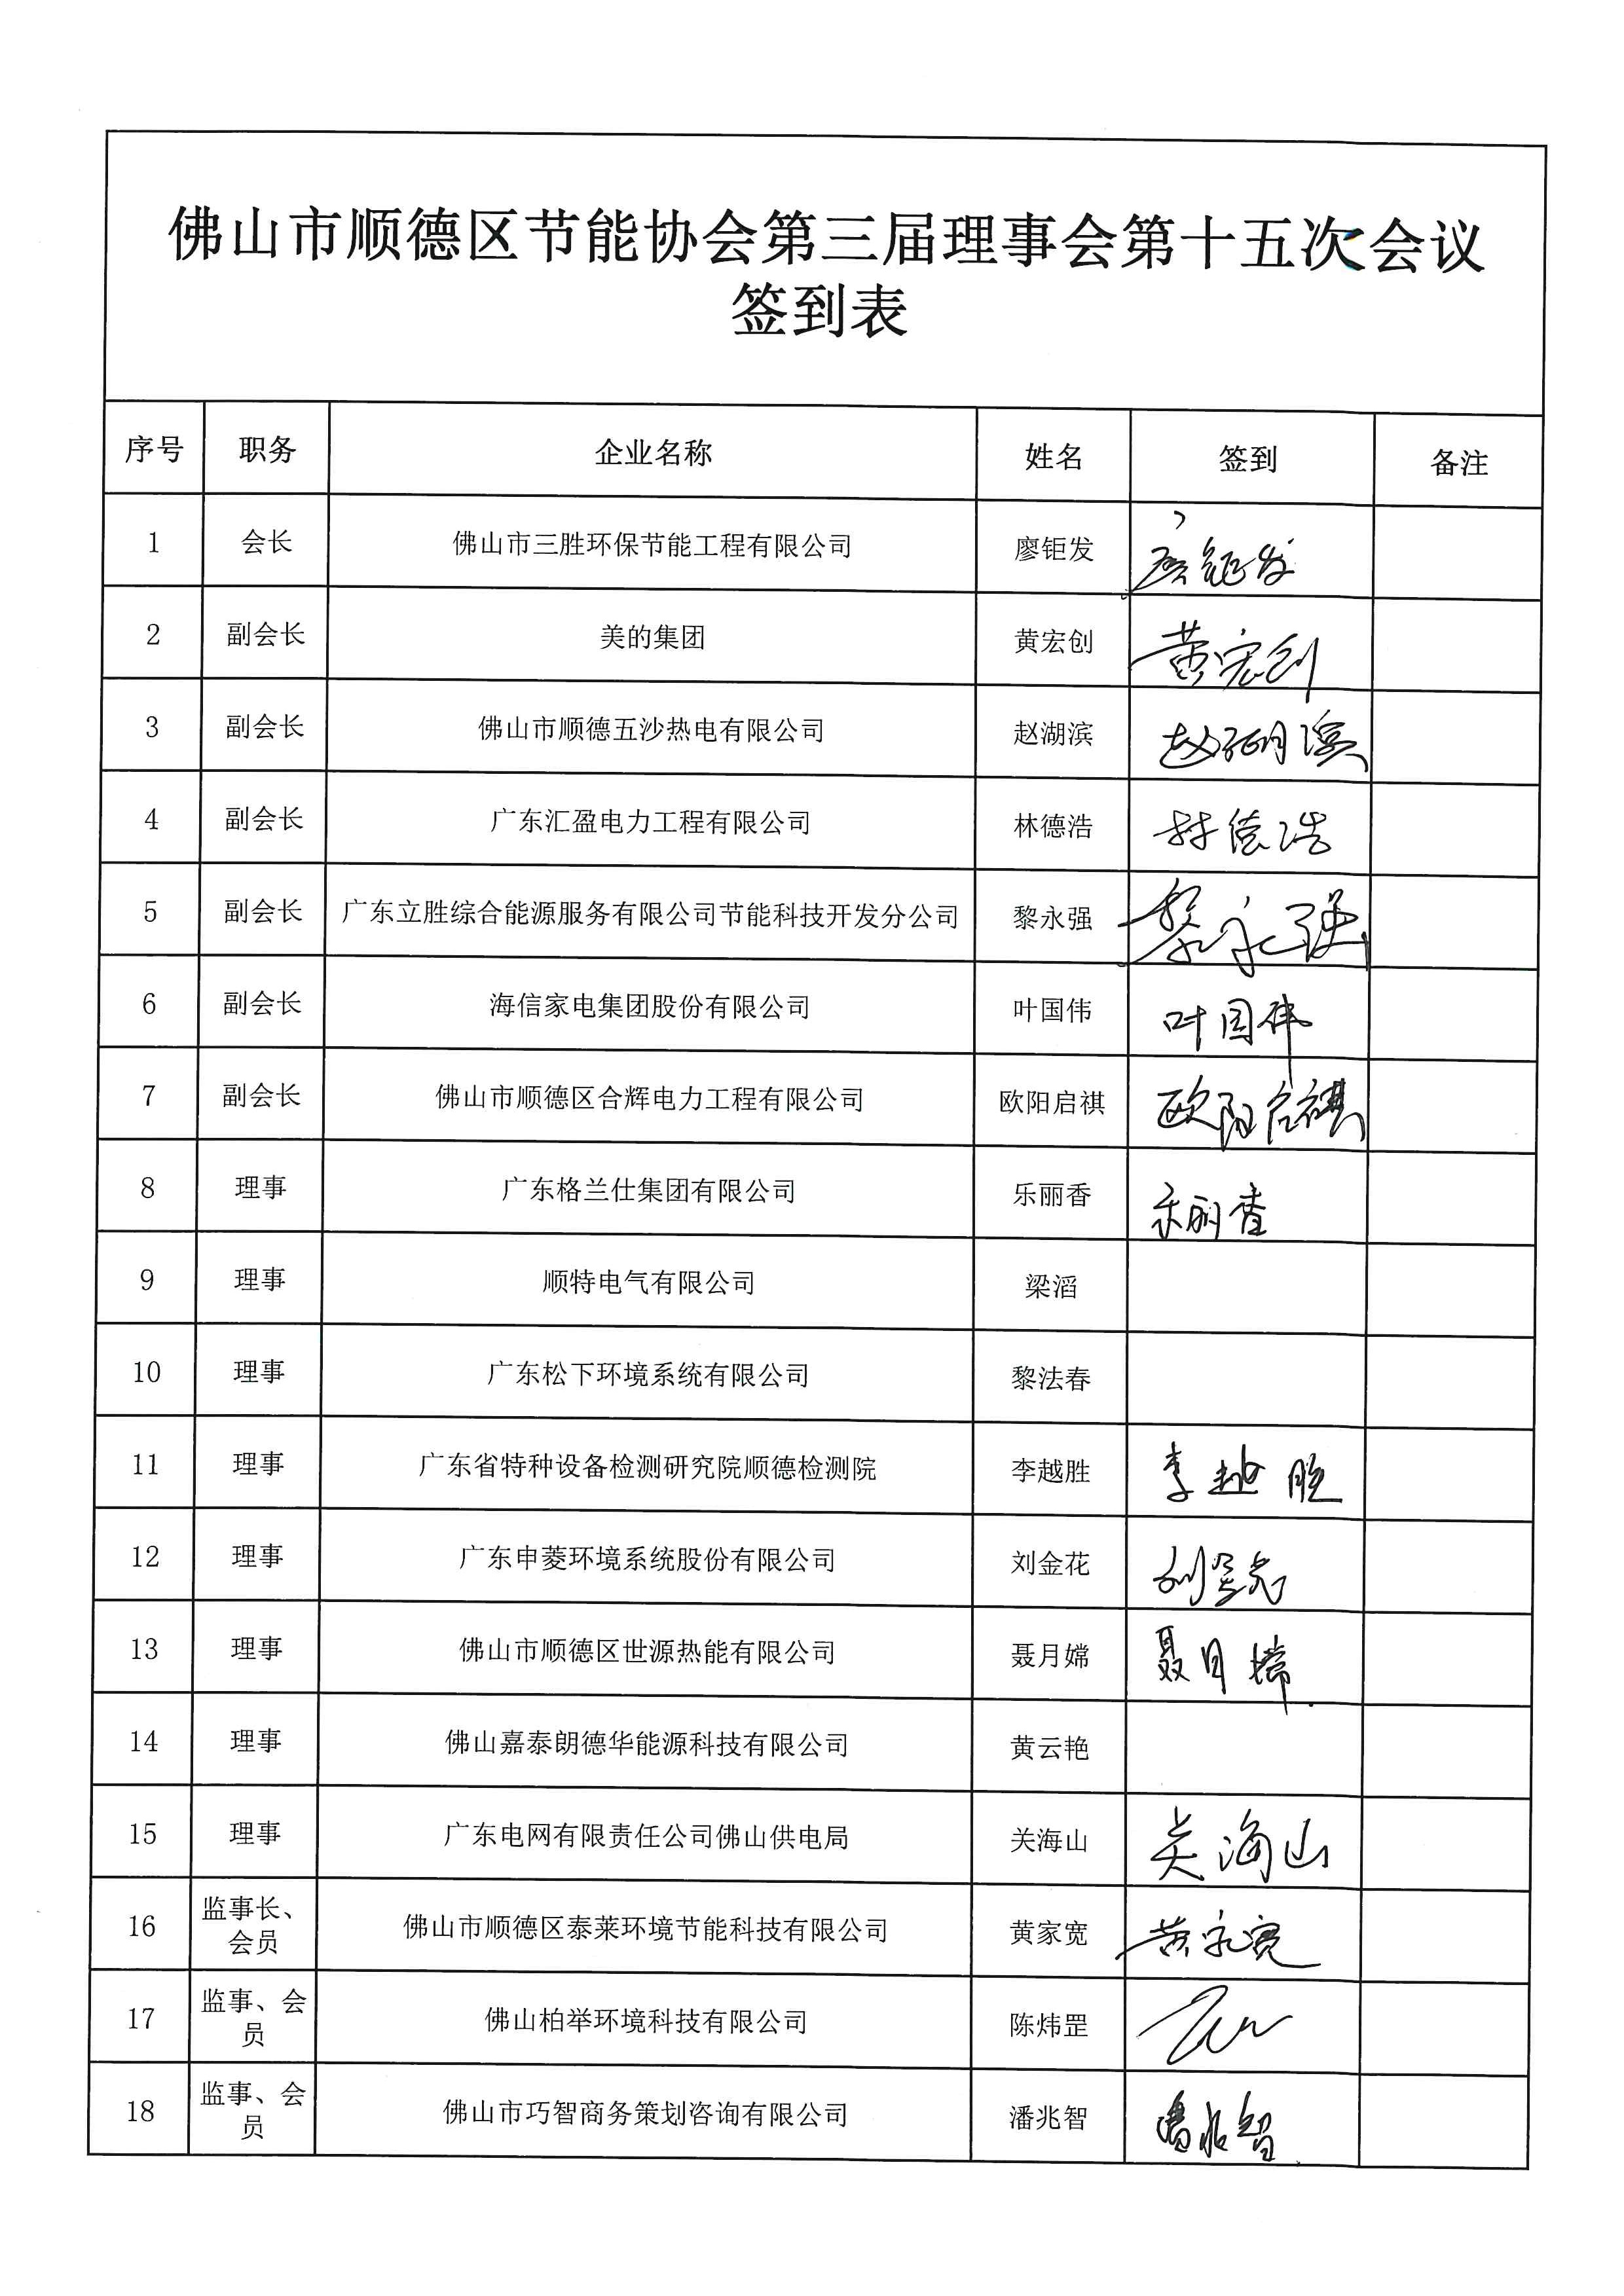 佛山市顺德区节能协会第三届理事会第十五次会议
签到表
序号 职务 企业名称 姓名 签到 备注
1 会长 佛山市三胜环保节能工程有限公司 廖钜发 廖钜发
2 副会长 美的集团 黄宏创 黄宏创
3 副会长 佛山市顺德五沙热电有限公司 赵湖滨 赵湖滨
4 副会长 广东汇盈电力工程有限公司 林德浩 林德浩
5 副会长 广东立胜综合能源服务有限公司节能科技开发分公司 黎永强 黎永强
6 副会长 海信家电集团股份有限公司 叶国伟 叶国伟
7 副会长 佛山市顺德区合辉电力工程有限公司 欧阳启祺 欧阳启祺
8 理事 广东格兰仕集团有限公司 乐丽香 乐丽香
9 理事 顺特电气有限公司 梁滔
10 理事 广东松下环境系统有限公司 黎法春
11 理事 广东省特种设备检测研究院顺德检测院 李越胜 李越胜
12 理事 广东申菱环境系统股份有限公司 刘金花 刘金花
13 理事 佛山市顺德区世源热能有限公司 聂月嫦 聂月嫦
14 理事 佛山嘉泰朗德华能源科技有限公司 黄云艳
15 理事 广东电网有限责任公司佛山供电局 关海山 关海山
16 监事长、会员 佛山市顺德区泰莱环境节能科技有限公司 黄家宽 黄家宽
17 监事、会员 佛山柏举环境科技有限公司 陈炜罡
18 监事、会员 佛山市巧智商务策划咨询有限公司 潘兆智 潘兆智